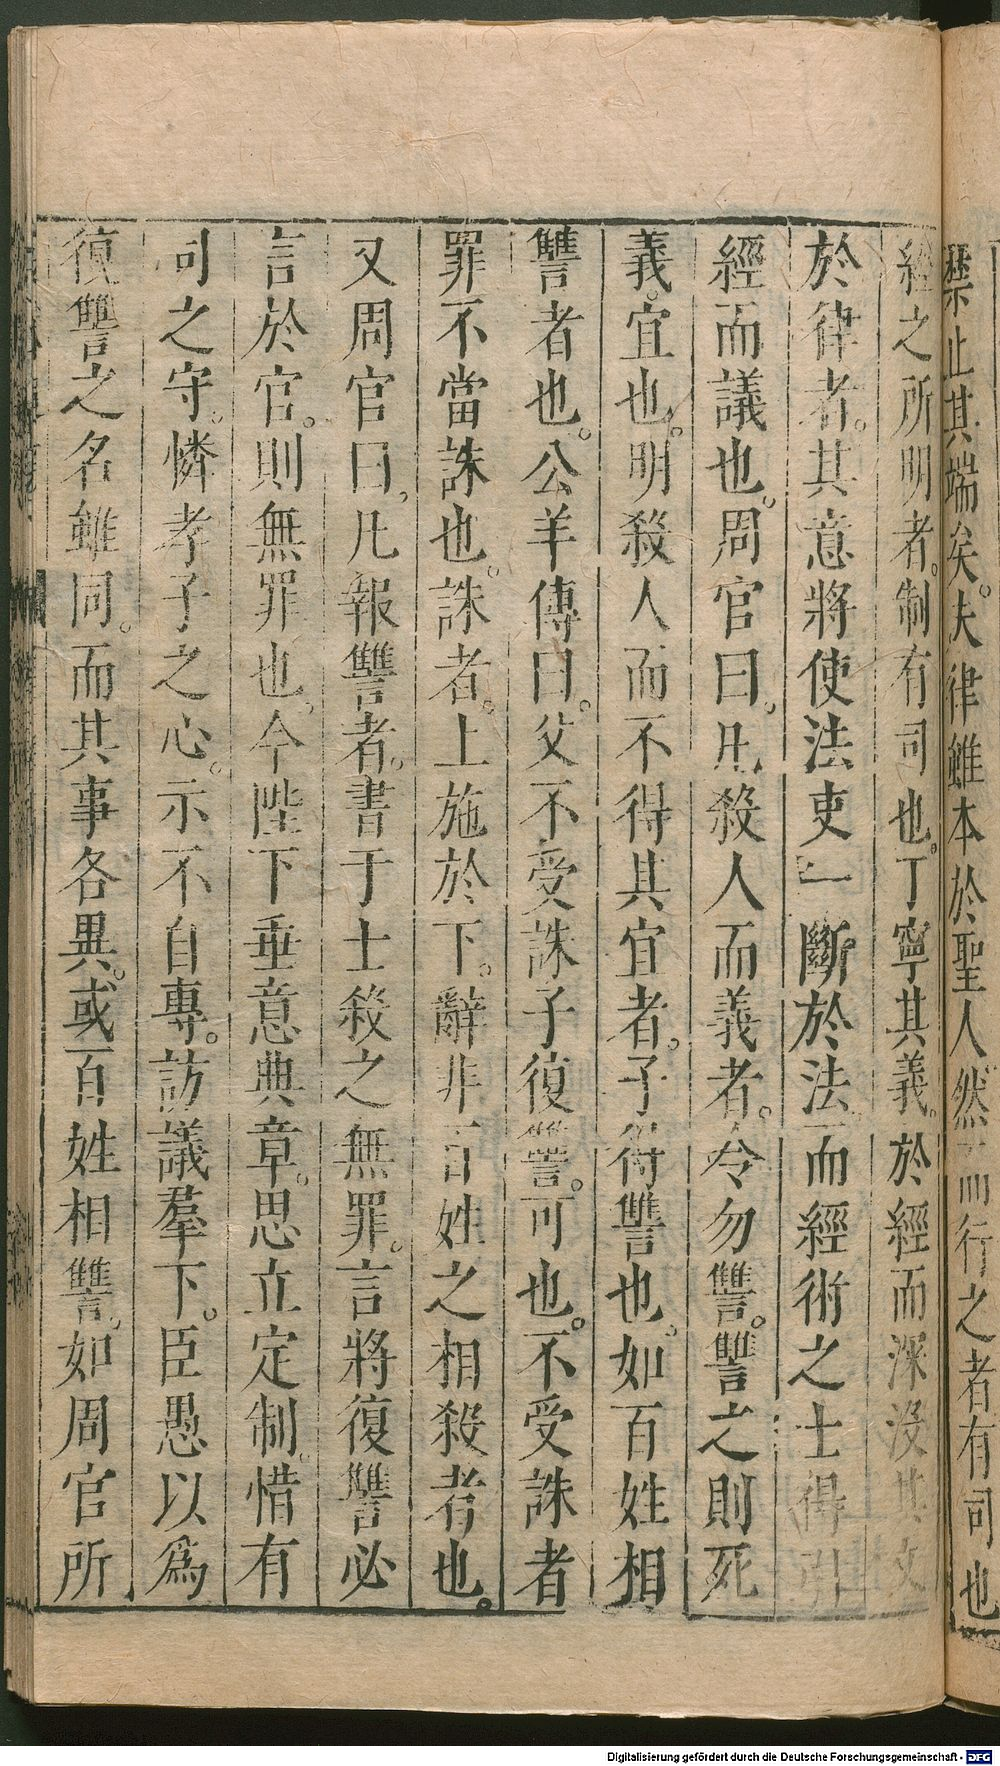 禁止其端矣。夫律雖本於聖人。然 而行之者有司也
經之所明者。制有司也。丁寧其義。於經而深没其文
於律者。其意將使法吏一斷於法。而經術之士得引
經而議也。周官曰。凡殺人而義者。令勿讐。讐之則死
義。宜也。明殺人而不得其宜者。子得讐也。如百姓相
讐者也。公羊傳曰。父不受誅。子復讐。可也。不受誅者
罪不當誅也。誅者。上施於下。辭非百姓之相殺者也。
又周官曰。凡報讐者。書于士。殺之無罪。言將復讐必
言於官。則無罪也。今陛下垂意典章。思立定制。惜有
司之守。憐孝子之心。示不自專。訪議羣下。臣愚以爲
復讐之名雖同。而其事各異。或百姓相讐。如周官所
Digitalisierung gefördert durch die Deutsche Forschungsgemeinschaft - DFG